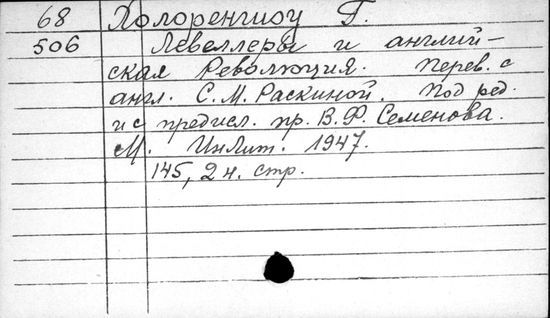 68 Холореншоу Г.
506 Левеллеры и англий-
ская Революция. Перев. с
англ. С.М. Раскиной. Под ред.
и с предисл. пр. В.Ф. Семенова.
М. ИнЛит. 1947.
145, 2 н. стр.